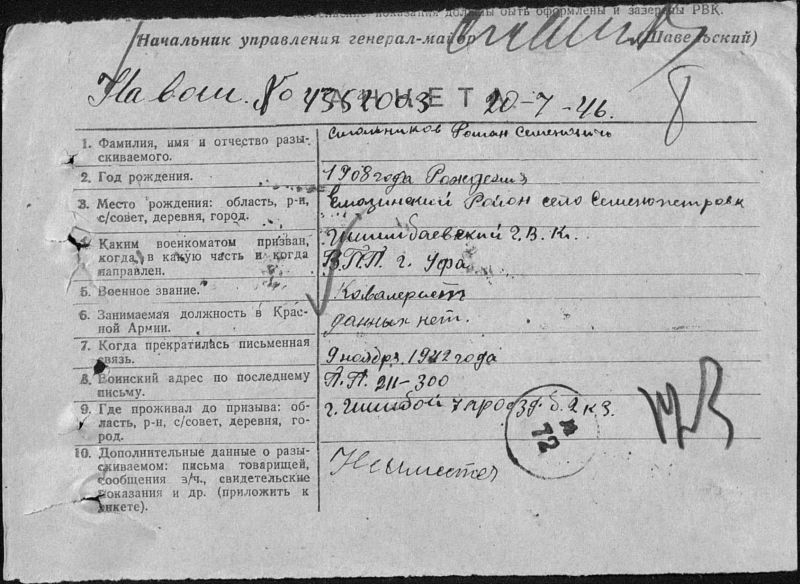 показания должны быть оформлены и заверены РВК.
Начальник управления генерал-майор (Шавельский)
На ваш. № 4362003 АНКЕТА 20-7-46. 8
1. Фамилия, имя и отчество разы-
скиваемого.
Смольников Роман Семенович
2. Год рождения.
1908 года Рождения
3. Место рождения: область, р-н,
с/совет, деревня, город.
Район село
4. Каким военкоматом призван,
когда, в какую часть и когда
направлен.
Ишимбаевский Г.В.К.
В.П.П. г. Уфа
5. Военное звание.
Ковалерист
6. Занимаемая должность в Крас-
ной Армии.
данных нет.
7. Когда прекратилась письменная
связь.
9 ноября 1942 года
8. Воинский адрес по последнему
письму.
П.П. 211-300
9. Где проживал до призыва: об-
ласть, р-н, с/совет, деревня, го-
род.
г. Ишимбой
10. Дополнительные данные о разы-
скиваемом: письма товарищей,
сообщения з/ч., свидетельские
показания и др. (приложить к
анкете).
Не имется
72